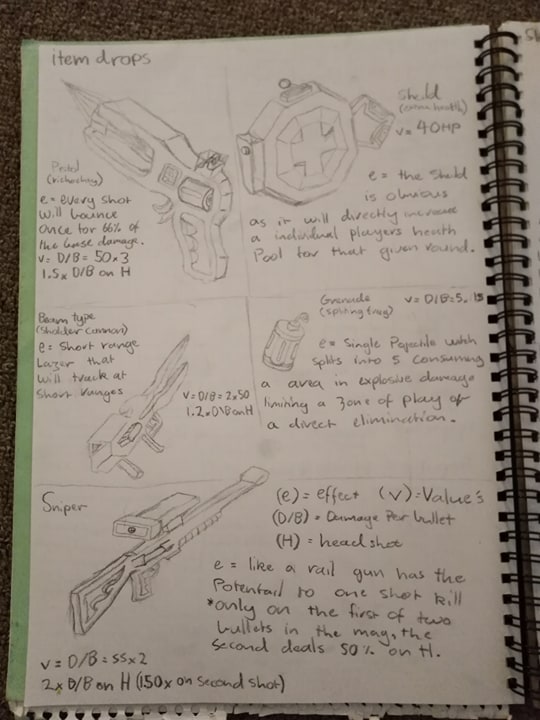 item drops
Pistol
(richochey)
e = every shot
will bounce
once for 66% of
the base damage.
v = D/B = 50x3
1.5x D/B on H
Sheild
(extra health)
v = 40HP
e = the Sheild
is obvious
as it will directly increase
a individual players heath
Pool for that given round.
Beam type
(Sholder cannon)
e = Short range
Lazer that
will track at
Short ranges
v = D/B = 2x50
1.2x D\B on H
Grenade
(spliting frag)
v = D/B = 5x15
e = Single Pojectile witch
splits into 5 Consuming
a area in explosive damage
limiting a zone of play or
a direct elimination.
Sniper
(e) = effect (v) = Value's
(D/B) = Damage Per bullet
(H) = head shot
e = like a rail gun has the
Potentail to one shot kill
*only on the first of two
bullets in the mag, the
second deals 50% on H.
v = D/B = 55x2
2x D/B on H (1.50x on second shot)